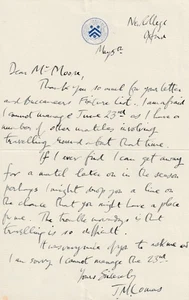 New College
Oxford
May 5th
Dear Mr Moore,
Thank you so much for your letter
and Buccaneers Fixture List. I am afraid
I cannot manage June 23rd as I have a
number of other matches involving
travelling round about that time.
If I ever find I can get away
for a match later on in the season
perhaps I might drop you a line on
the chance that you might have a place
for me. The trouble nowadays is that
travelling is so difficult.
It was very nice of you to ask me and
I am sorry I cannot manage the 23rd.
Yours Sincerely